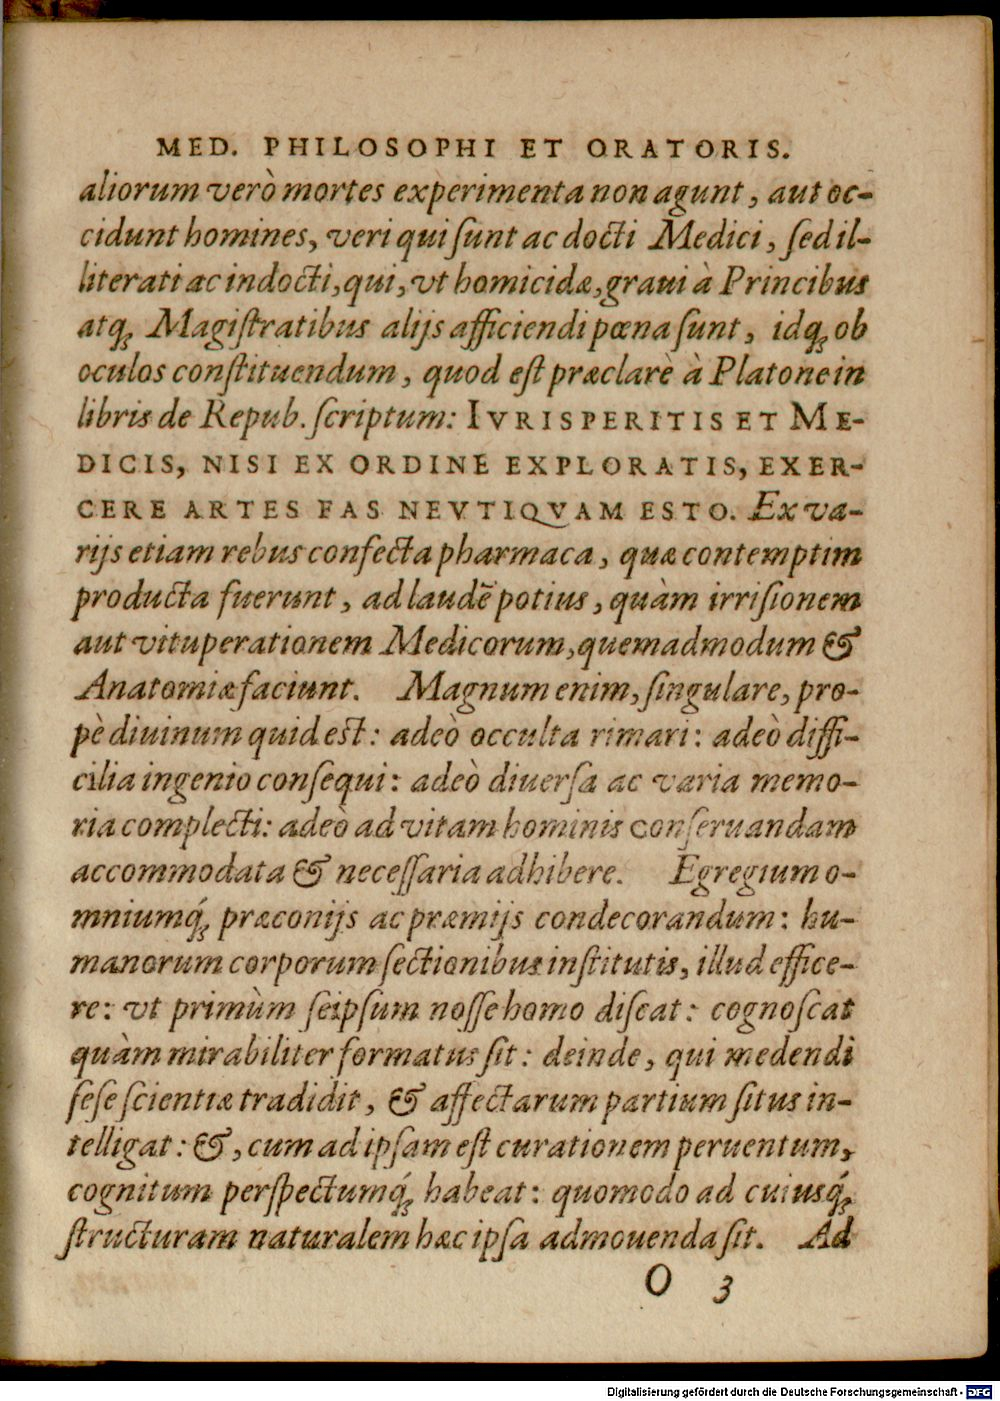 MED. PHILOSOPHI ET ORATORIS.
aliorum verò mortes experimenta non agunt, aut oc-
cidunt homines, veri qui ſunt ac docti Medici, ſed il-
literati ac indocti, qui, vt homicidæ, graui à Principus
atq; Magiſtratibus alijs afficiendi pœna ſunt, idq; ob
oculos conſtituendum, quod eſt præclarè à Platone in
libris de Repub. ſcriptum: IVRISPERITIS ET ME-
DICIS, NISI EX ORDINE EXPLORATIS, EXER-
CERE ARTES FAS NEVTIQVAM ESTO. Ex va-
rijs etiam rebus confecta pharmaca, quæ contemptim
producta fuerunt, ad laudē potius, quàm irriſionem
aut vituperationem Medicorum, quemadmodum &
Anatomiæ faciunt. Magnum enim, ſingulare, pro-
pè diuinum quid est: adeò occulta rimari: adeò diffi-
cilia ingenio conſequi: adeò diuerſa ac varia memo-
ria complecti: adeò ad vitam hominis conſeruandam
accommodata & neceſſaria adhibere. Egregium o-
mniumq́; præconijs ac præmijs condecorandum: hu-
manorum corporum ſectionibus inſtitutis, illud effice-
re: vt primùm ſeipſum noſſe homo diſcat: cognoſcat
quàm mirabiliter formatus ſit: deinde, qui medendi
ſeſe ſcientiæ tradidit, & affectarum partium ſitus in-
telligat: &, cum ad ipſam eſt curationem peruentum,
cognitum perſpectumq́; habeat: quomodo ad cuiusq́;
ſtructuram naturalem hæc ipſa admouenda ſit. Ad
O 3
Digitalisierung gefördert durch die Deutsche Forschungsgemeinschaft - DFG